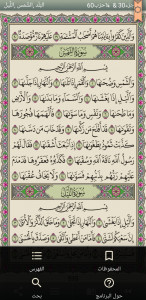 البلد ,الشمس ,الليل
جزء30 & حزب60
وَالَّذِينَ كَفَرُوا بِآيَاتِنَا هُمْ أَصْحَابُ الْمَشْأَمَةِ عَلَيْهِمْ نَارٌ مُؤْصَدَةٌ
سُورَةُ الشَّمْسِ
بِسْمِ اللَّهِ الرَّحْمَٰنِ الرَّحِيمِ
وَالشَّمْسِ وَضُحَاهَا وَالْقَمَرِ إِذَا تَلَاهَا وَالنَّهَارِ إِذَا جَلَّاهَا
وَاللَّيْلِ إِذَا يَغْشَاهَا وَالسَّمَاءِ وَمَا بَنَاهَا وَالْأَرْضِ وَمَا
طَحَاهَا وَنَفْسٍ وَمَا سَوَّاهَا فَأَلْهَمَهَا فُجُورَهَا
وَتَقْوَاهَا قَدْ أَفْلَحَ مَنْ زَكَّاهَا وَقَدْ خَابَ مَنْ دَسَّاهَا
كَذَّبَتْ ثَمُودُ بِطَغْوَاهَا إِذِ انْبَعَثَ أَشْقَاهَا فَقَالَ
لَهُمْ رَسُولُ اللَّهِ نَاقَةَ اللَّهِ وَسُقْيَاهَا فَكَذَّبُوهُ فَعَقَرُوهَا
فَدَمْدَمَ عَلَيْهِمْ رَبُّهُمْ بِذَنْبِهِمْ فَسَوَّاهَا وَلَا يَخَافُ عُقْبَاهَا
سُورَةُ اللَّيْلِ
بِسْمِ اللَّهِ الرَّحْمَٰنِ الرَّحِيمِ
وَاللَّيْلِ إِذَا يَغْشَىٰ وَالنَّهَارِ إِذَا تَجَلَّىٰ وَمَا خَلَقَ الذَّكَرَ وَالْأُنْثَىٰ
إِنَّ سَعْيَكُمْ لَشَتَّىٰ فَأَمَّا مَنْ أَعْطَىٰ وَاتَّقَىٰ
المحفوظات
الفهرس
حول البرنامج
بحث